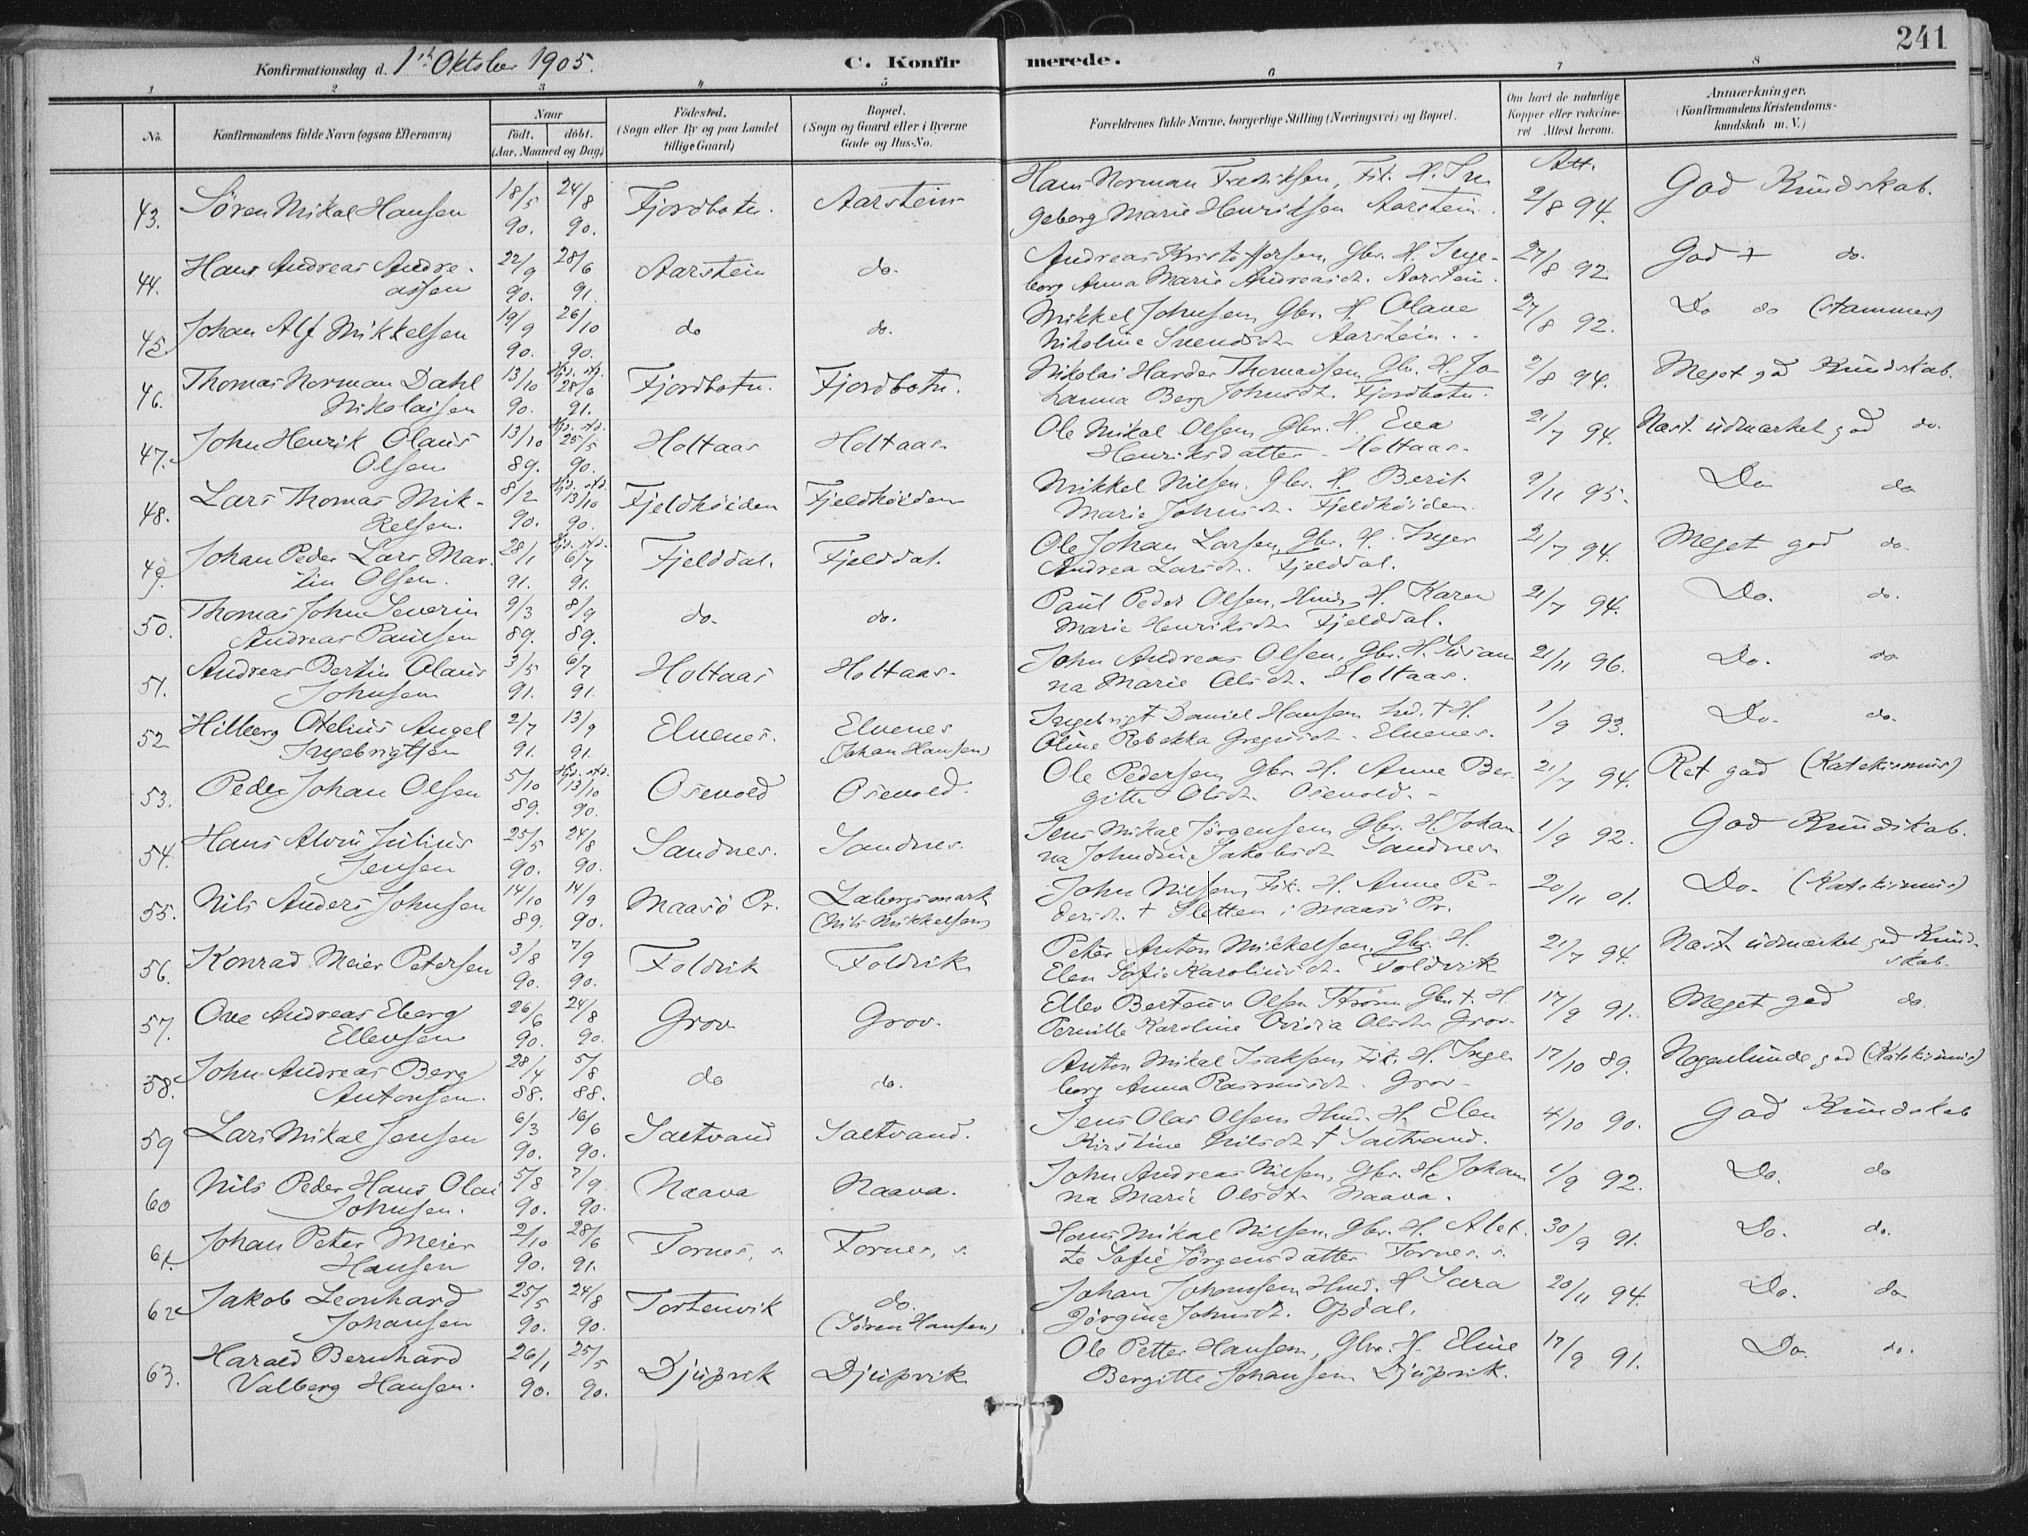 241
Konfirmationsdag d. 1ste Oktober 1905. C. Konfirmerede.
1 2 3 4 5 6 7 8
No. Konfirmandens fulde Navn (ogsaa Efternavn) Naar født. døbt. (Aar, Maaned og Dag) Fødested. (Sogn eller By og paa Landet tillige Gaard) Bopæl. (Sogn og Gaard eller i Byerne Gade og Hus-No. Forældrenes fulde Navne, borgerlige Stilling (Næringsvei) og Bopæl. Om havt de naturlige Kopper eller vaccineret Attest herom. Anmærkninger. (Konfirmandens Kristendomskundskab m. V.)
Att.
43. Søren Mikal Hansen 18/5 90. 24/8 90. Fjordbotn. Aarstein Hans Norman Fredriksen, Fik. H. In
geborg Marie Henriksen Aarstein. 2/8 94. God Kundskab.
44. Hans Andreas Andre-
assen 22/9 90. 28/6 91. Aarstein do. Andreas Kristoffersen, Gbr. H. Inge-
borg Anna Marie Andreasdt. Aarstein. 27/8 92 God + do.
45. Johan Alf Mikkelsen 19/9 90. 26/10 90. do do. Mikkel Johnsen, Gbr. H. Olave
Nikoline Svendsdt. Aarstein. 27/8 92. Do do (Stammer)
46. Thomas Norman Dahl
Nikolaisen 13/10 90. Hjd. stf. 28/6 91. Fjordbotn. Fjordbotn. Nikolai Harder Thomassen, Gbr. H. Jo
hanna Berg Johnsdt. Fjordbotn. 2/8 94. Meget god Kundskab.
47. John Henrik Olaus
Olsen 13/10 89. Hjd. stf. 25/5 90. Holtaas Holtaas. Ole Mikal Olsen, Gbr. H. Eva
Henriksdatter. Holtaas. 21/7 94. Næst. udmærket god do.
48. Lars Thomas Mik-
kelsen. 8/2 90. Hjd. stf. 13/10 90. Fjeldhöiden Fjeldhöiden Mikkel Nilsen. Gbr. H. Berit
Marie Johnsdt. Fjeldhöiden. 9/11 95. Do. do
49. Johan Peder Lars Mar
tin Olsen. 28/1 91. Hjd. stf. 6/7 91. Fjelddal. Fjelddal. Ole Johan Larsen, Gbr. H. Inger
Andrea Larsdt. Fjelddal. 21/7 94. Meget god do.
50. Thomas John Severin
Andreas Paulsen 9/3 89. 8/9 89. do. do. Paul Peder Olsen, Hmd. H. Karen
Marie Henriksdt. Fjelddal. 21/7 94. Do. do.
51. Andreas Bertin Olaus
Johnsen 3/5 91. 6/7 91. Holtaas Holtaas. John Andreas Olsen, Gbr. H. Susan
na Marie Olsdt. Holtaas. 21/11 96. Do. do
52 Hilberg Otelius Angel
Ingebrigtsen 2/7 91. 13/9 91. Elvenes. Elvenes
(Johan Hansen) Ingebrigt Daniel Hansen Ind. + H.
Oline Rebekka Gregusdt. Elvenes. 1/9 93. Do. do.
53. Peder Johan Olsen 5/10 89. Hjd. stf. 13/10 90. Osevold Osevold. Ole Pedersen Gbr. H. Anne Ber-
gitte Olsdt. Osevold. 21/7 94. Ret god (Katekismus)
54. Hans Alvin Julius
Jensen 25/5 90. 24/8 90. Sandnes. Sandnes. Jens Mikal Jørgensen, Gbr. H. Johan
na Johndine Jakobsdt Sandnes. 1/9 92. God Kundskab.
55. Nils Anders Johnsen 14/10 89. 14/9 90. Maasö Pr. Labergsmark
(Nils Mikkelsen) John Nilsen, Fik. H. Anne Pe-
dersdt. + Sletten i Maasö Pr. 20/11 01. Do. (Katekismus)
56. Konrad Meier Petersen 3/8 90. 7/9 90. Foldvik Foldvik. Peter Anton Mikkelsen, Gbr. H.
Elen Sofie Karolinesdt. Foldvik 21/7 94. Næst udmærket god Kund-
skab.
57. Ove Andreas Eberg
Ellevsen 26/6 90. 24/8 90. Grov. Grov. Ellev Berteus Olsen Strøm Gbr. + H.
Pernille Karoline Ovidia Olsdt. Grov. 17/9 91. Meget god do.
58. John Andreas Berg
Antonsen. 28/4 88. 5/8 88. do do. Anton Mikal Isaksen, Fik. H. Inge
borg Anna Rasmusdt. Grov. 17/10 89. Nogenlunde god (Katekismus)
59 Lars Mikal Jensen 6/3 90. 16/6 90. Saltvand Saltvand. Jens Olai Olsen, Hmd. H. Elen
Kirstine Nilsdt + Saltvand. 4/10 90. God Kundskab
60 Nils Peder Hans Olai
Johnsen. 5/8 90. 7/9 90. Naava Naava. John Andreas Nilsen, Gbr. H. Johan
na Marie Olsdt. Naava. 1/9 92. Do. do
61. Johan Peter Meier
Hansen 2/10 90. 28/6 91. Fornes, s. Fornes, s. Hans Mikal Nilsen, Gbr. H. Alet
te Sofie Jørgensdatter Fornes. s. 30/9 91. Do. do.
62 Jakob Leonhard
Johansen 25/5 90. 24/8 90. Tortenvik do.
(Søren Hansen) Johan Johansen Hmd. H Sara
Jørgine Johnsdt. Opdal. 20/11 94. Do. do
63. Harald Bernhard
Valberg Hansen. 26/1 90. 25/5 90. Djupvik Djupvik Ole Petter Hansen, Gbr. H. Eline
Bergitte Johansen Djupvik. 17/9 91. Do. do.